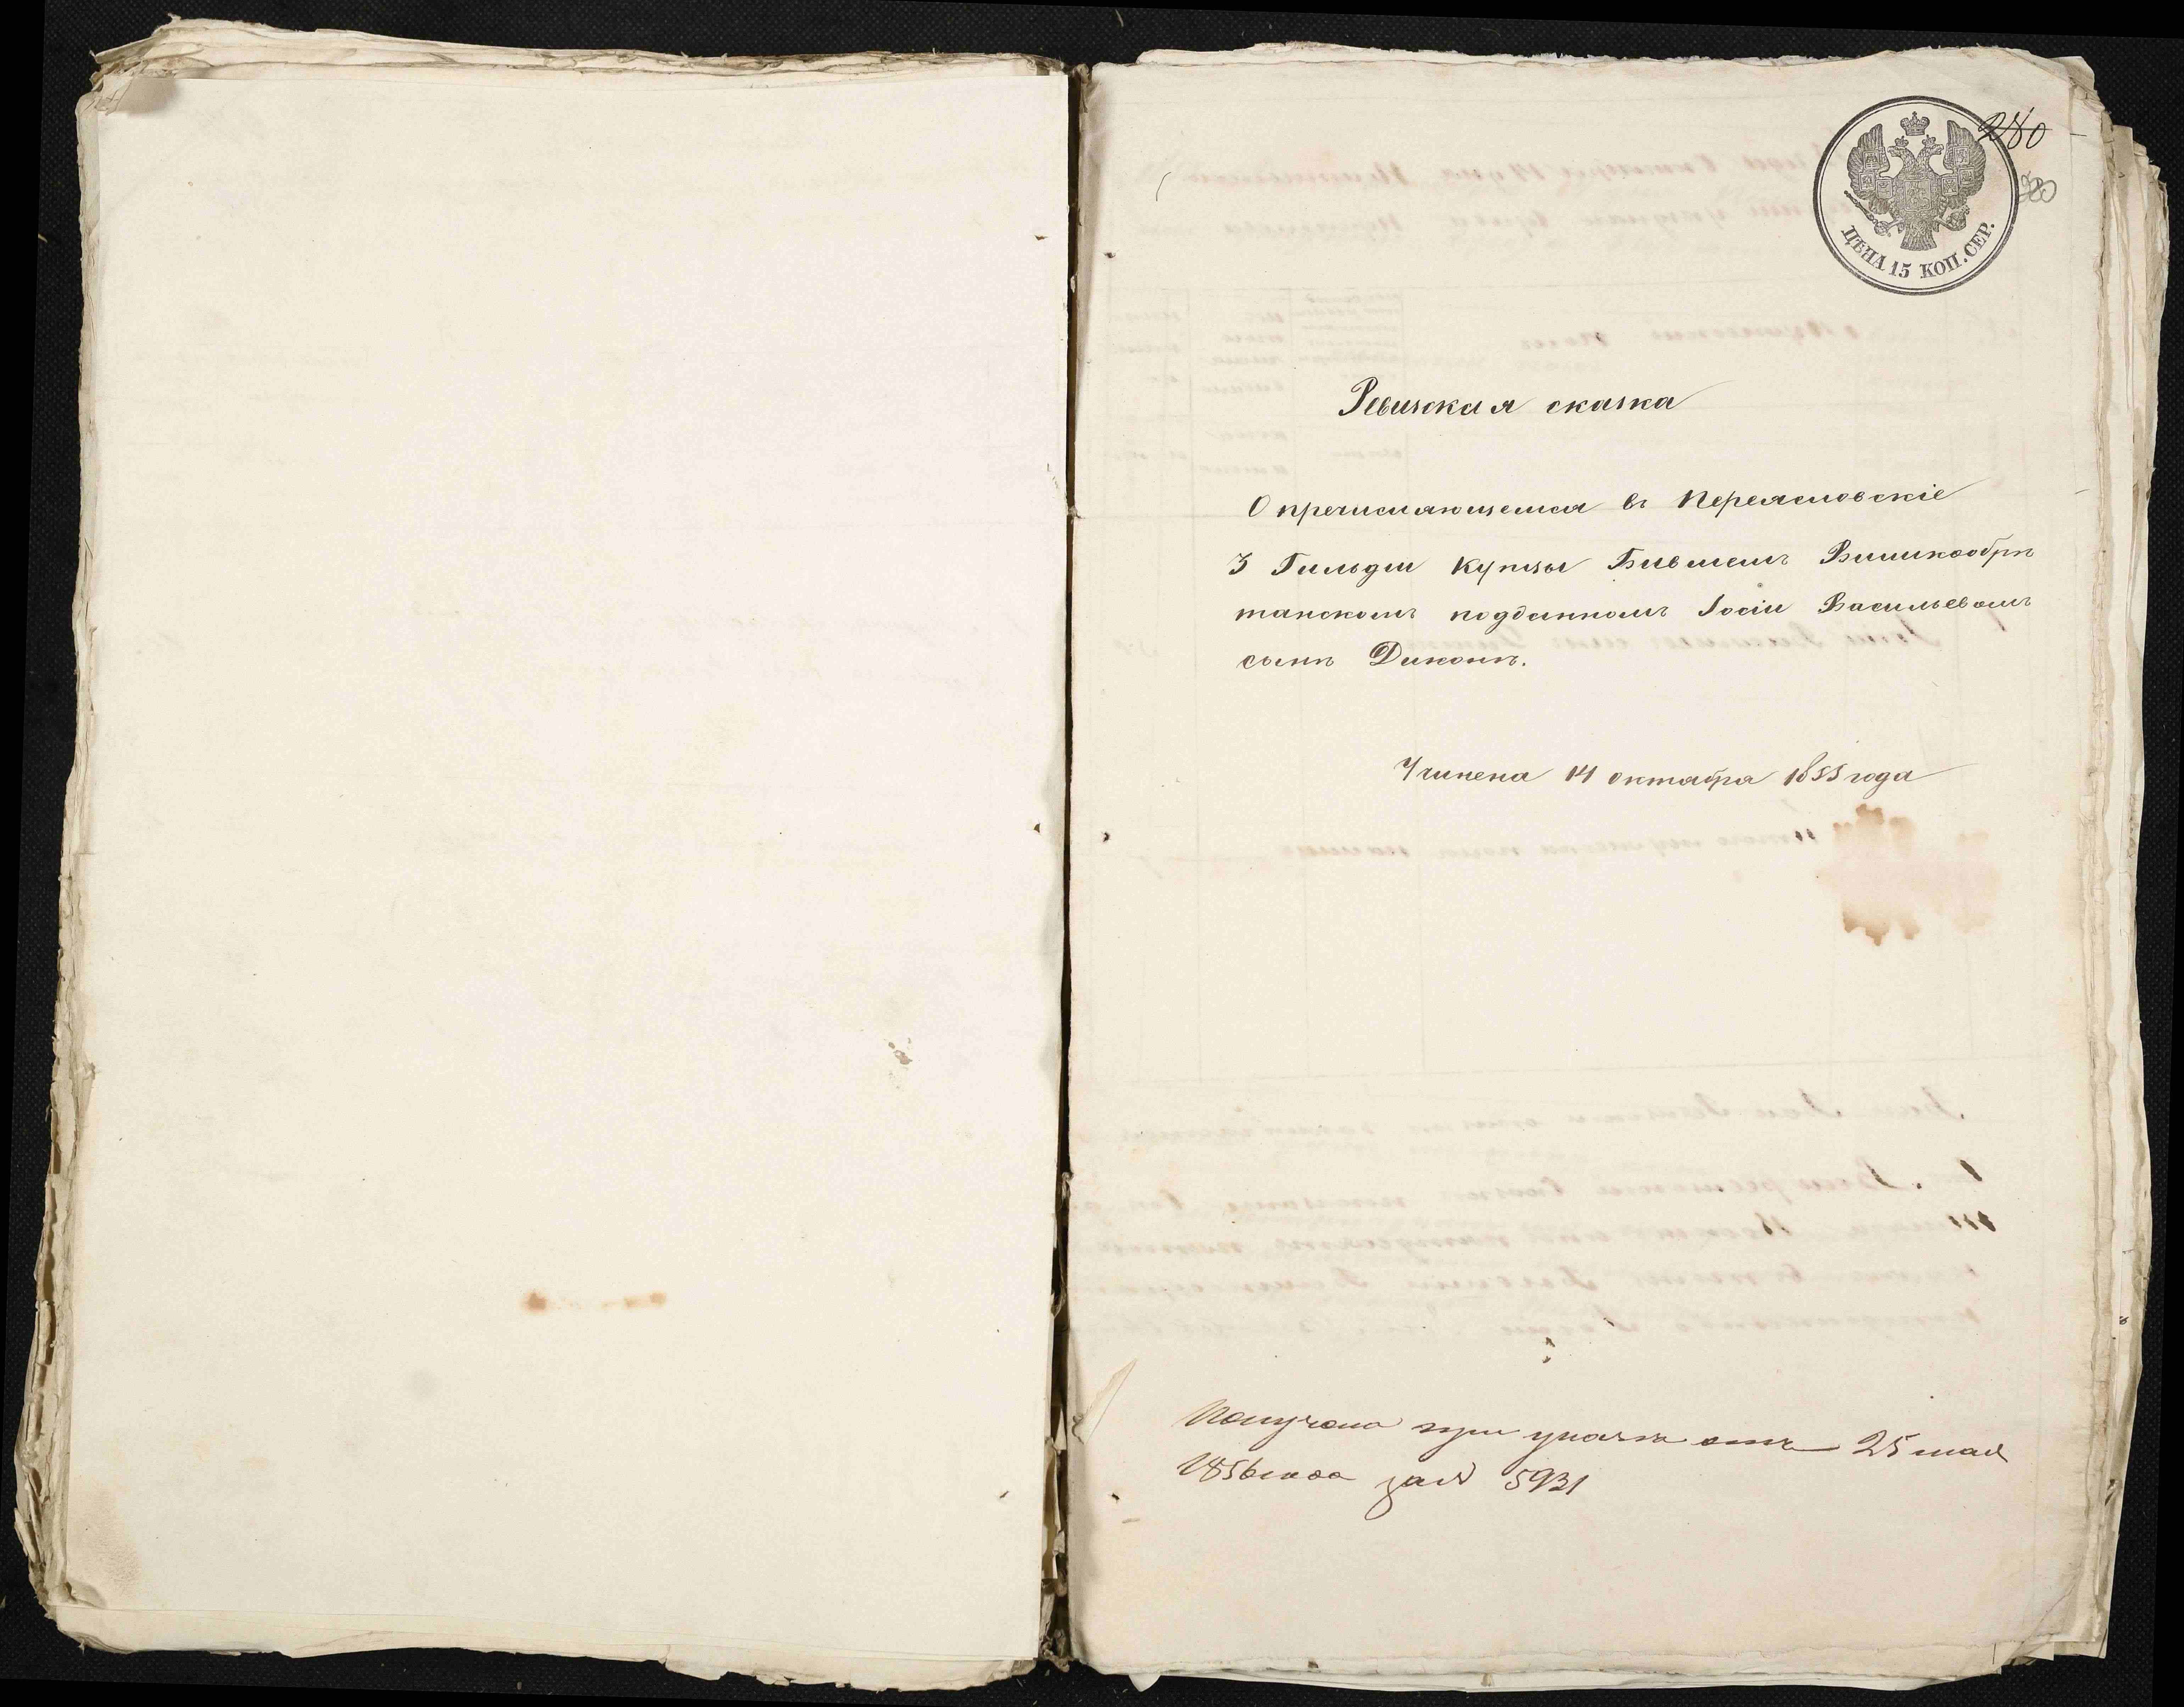 280
280
ЦѢНА 15 КОП. СЕР.
Ревизская сказка
О пречисляющемся въ Переясловскіе
3 Гильдіи купцы Бившемъ Виликобри
танскомъ подданномъ Іосіи Васильевомъ
сынѣ Диконѣ.
Учинена 14 октабра 1855 года
Получена при указѣ отъ 25 мая
1856 года за № 5931